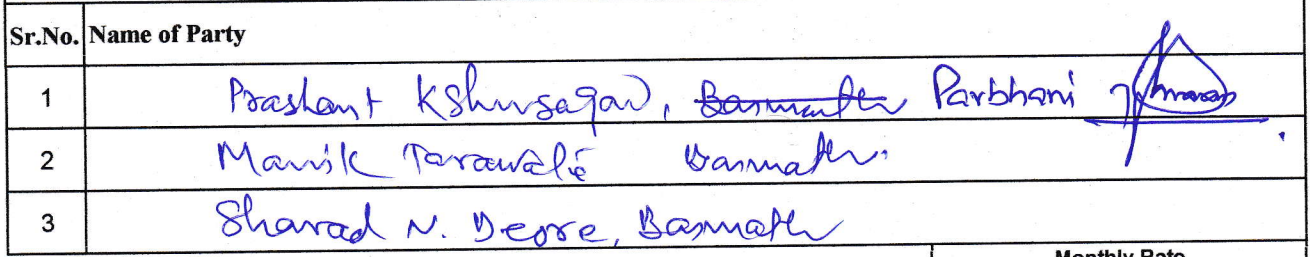 Sr.No. Name of Party
1 Prashant Kshirsagar, Basmath Parbhani
2 Manik Tarawale Basmath.
3 Sharad N. Deore, Basmath
Monthly Rate